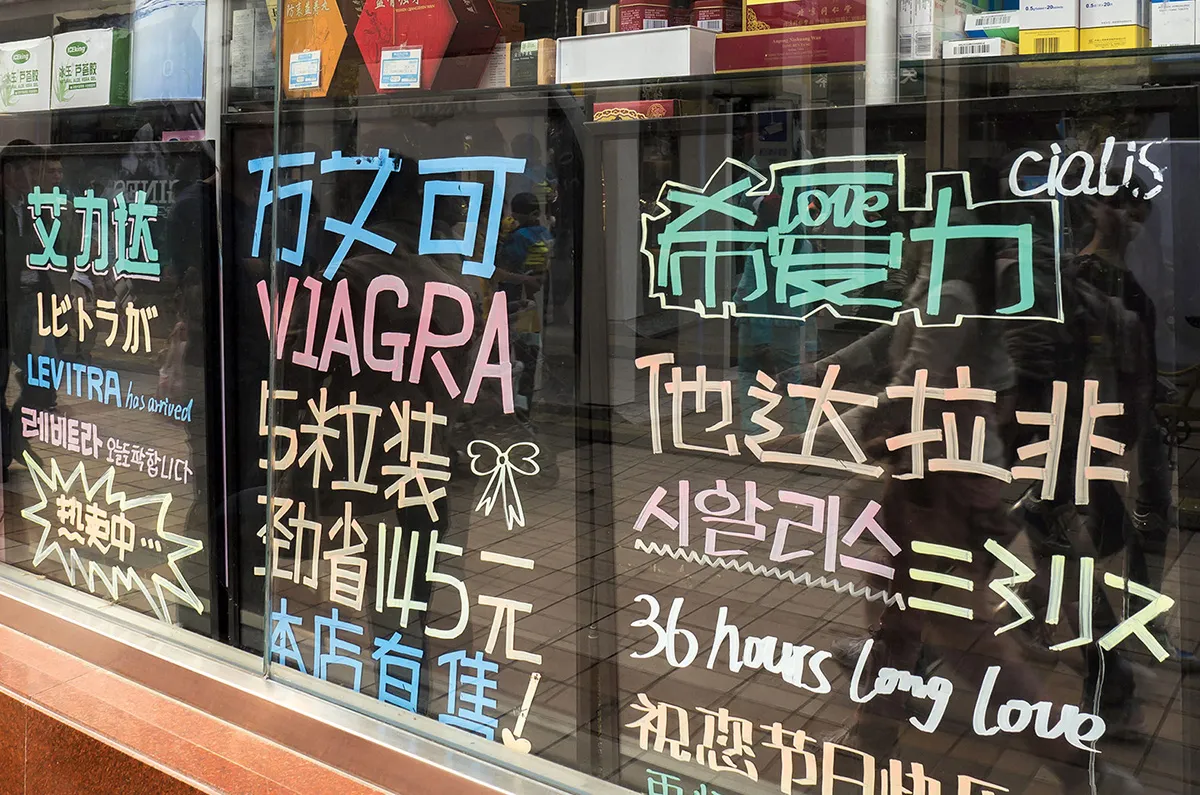 艾力达
レビトラが
LEVITRA has arrived
레비트라 오늘도착합니다
热卖中...
万艾可
VIAGRA
5粒装
劲省145元
本店有售!
cialis
希爱力
love
他达拉非
시알리스
36 hours long love
祝您节日快乐